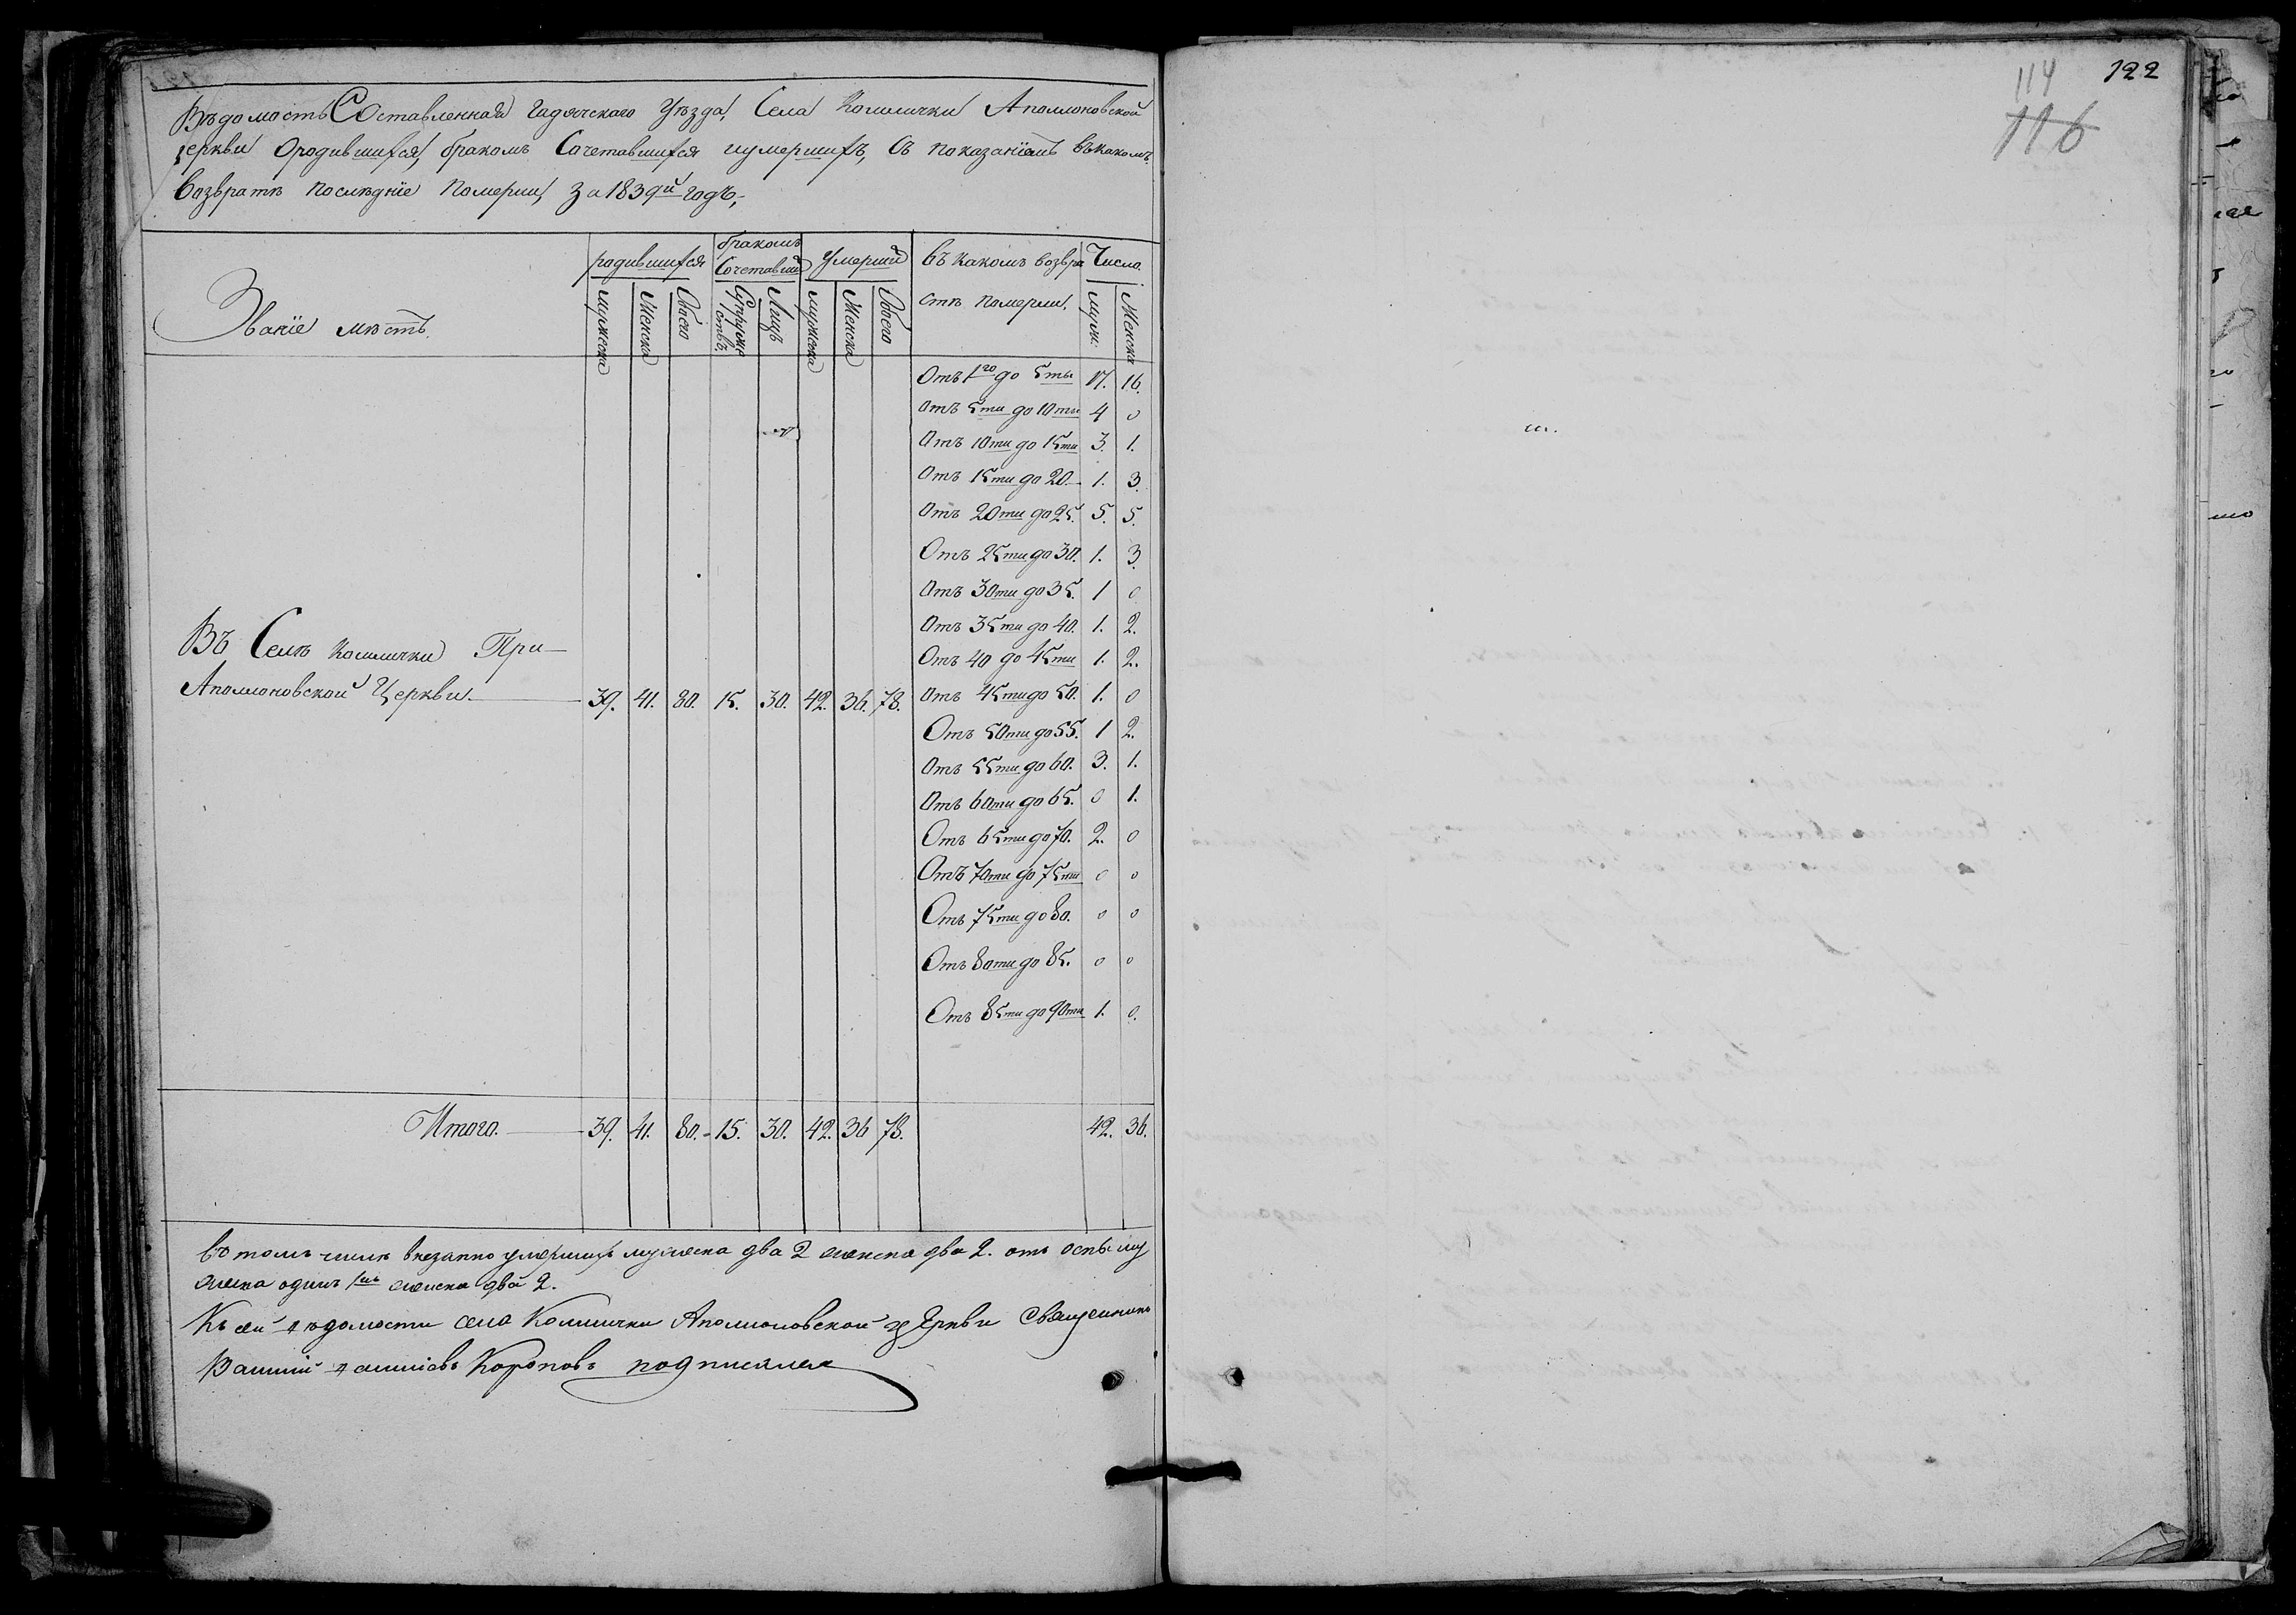 Вѣдомость Составленная Гадячскаго Уѣзда, Села Комлички Аполлоновской
церкви Ородившихся, бракомъ Сочетавшихся иумершихъ, Съ показанїемъ въкакомъ
возврастѣ послѣднїе Померли, за 1839й годъ,
Званїе мѣстъ.
родившихся
бракомъ
Сочетавши
Умерши
въ какомъ возвра
стѣ померли.
Число.
мужеска
Женска
Обоего
Супруже
ствъ
Лицъ
мужеска
Женска
Обоего
муж:
Женска
Отъ 1го до 5ти 17. 16.
Отъ 5ти до 10ти 4 0
Отъ 10ти до 15ти 3. 1.
Отъ 15ти до 20. 1. 3.
Отъ 20ти до 25. 5. 5.
Отъ 25ти до 30. 1. 3.
Отъ 30ти до 35. 1 0
Отъ 35ти до 40. 1. 2.
Отъ 40 до 45ти 1. 2.
Въ Селѣ Комлички При
Аполлоновской Церкви. 39. 41. 80. 15. 30. 42. 36. 78.
Отъ 45ти до 50. 1. 0
Отъ 50ти до 55. 1 2.
Отъ 55ти до 60. 3. 1.
Отъ 60ти до 65. 0 1.
Отъ 65ти до 70. 2. 0
Отъ 70ти до 75ти 0 0
Отъ 75ти до 80. 0 0
Отъ 80ти до 85. 0 0
Отъ 85ти до 90ти 1. 0.
Итого. 39. 41. 80. 15. 30. 42. 36 78. 42. 36.
въ томъ числѣ внезапно умершихъ мужеска два 2 женска два 2. отъ оспы му
жеска одинъ женска два 2.
Къ сей вѣдомости села Комлички Аполлоновской церкви Священникъ
Короповъ подписался
114
122
116